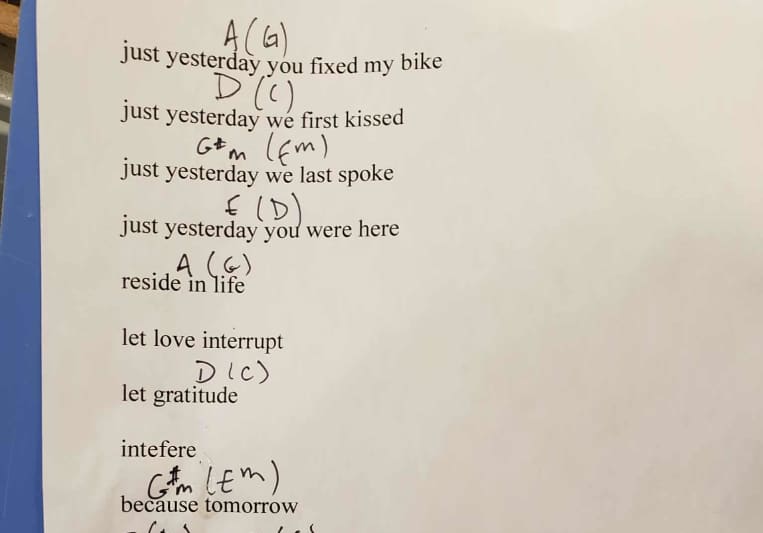 A (G)
just yesterday you fixed my bike
D (C)
just yesterday we first kissed
G#m (Em)
just yesterday we last spoke
E (D)
just yesterday you were here
A (G)
reside in life
let love interrupt
D (C)
let gratitude
intefere
G#m (Em)
because tomorrow